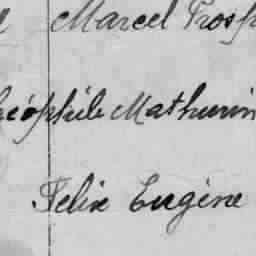 Marcel Prosp
éophile Mathurin
Felix Eugène